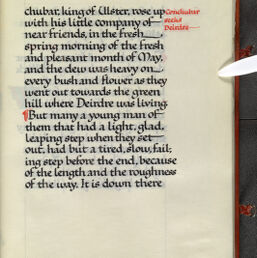 chubar, king of Ulster, rose up
with his little company of
near friends, in the fresh
spring morning of the fresh
and pleasant month of May,
and the dew was heavy on
every bush and flower as they
went out towards the green
hill where Deirdre was living.
¶But many a young man of
them that had a light, glad,
leaping step when they set
out, had but a tired, slow, fail;
ing step before the end, because
of the length and the roughness
of the way. It is down there
Conchubar
seeks
Deirdre